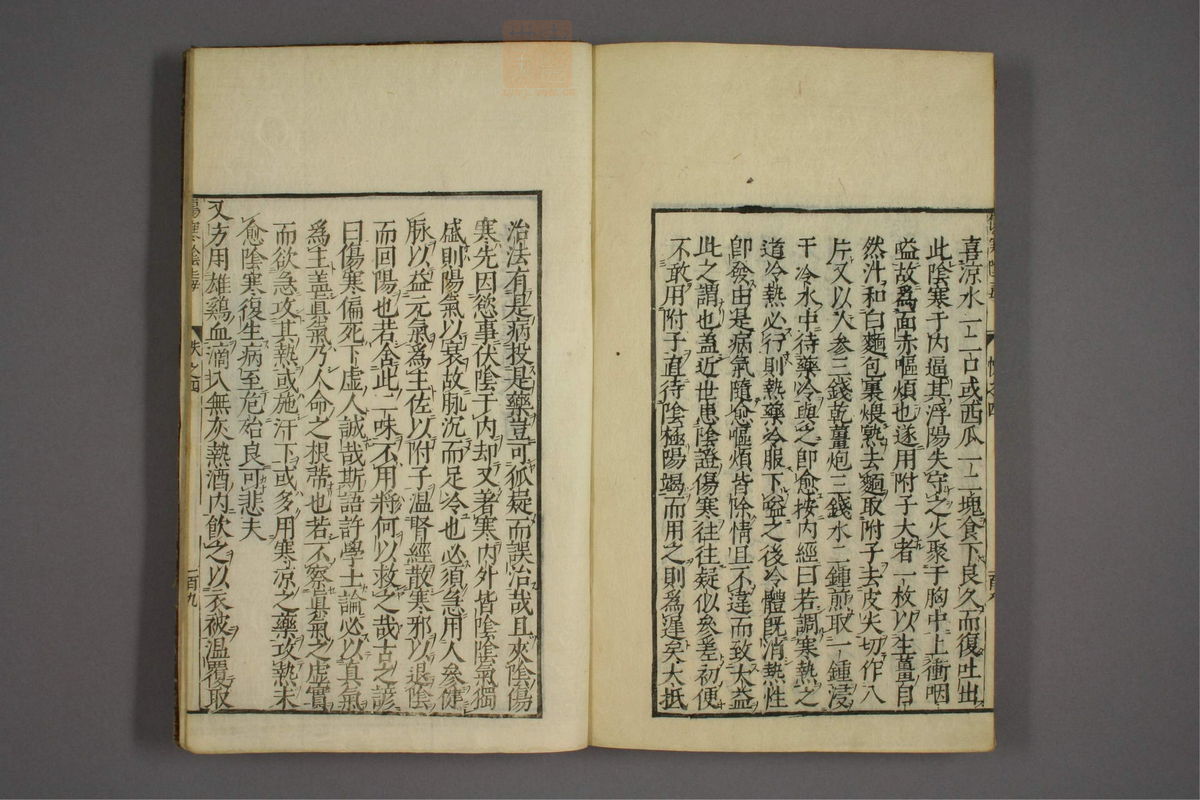 喜涼水一二口或西瓜一二塊食下良久而復吐出
此陰寒于内逼其浮陽失守之火聚于胸中上衝咽
嗌故爲面赤嘔煩也遂用附子大者一枚以生薑自
然汁和白麵包裹煨熟去麵取附子去皮尖切作八
片又以人參三錢乾薑炮三錢水二鍾煎取一鍾浸
于冷水中待藥冷與之即愈按内經曰若調寒熱之
道冷熱必行則熱藥冷服下嗌之後冷體旣消熱性
卽發由是病氣隨愈嘔煩皆除情且不違而致大益
此之謂也蓋近世患陰證傷寒往往疑似參差初便
不敢用附子直待陰極陽竭而用之則爲遲矣大抵
治法有是病投是藥豈可狐疑而誤治哉且夾陰傷
寒先因慾事伏陰于内却又著寒内外皆陰陰氣獨
盛則陽氣以衰故脉沉而足冷也必須急用人參健
脉以益元氣爲主佐以附子溫腎經散寒邪以退陰
而回陽也若舍此二味不用將何以救之哉古之諺
曰傷寒偏死下虚人誠哉斯語許學士論必以真氣
爲主蓋眞氣乃人命之根蔕也若不察眞氣之虚實
而欲急攻其熱或施汗下或多用寒凉之藥攻熱未
愈陰寒復生病至危殆良可悲夫
又方用雄鷄血滴入無灰熱酒内飲之以衣被溫覆取
一百九